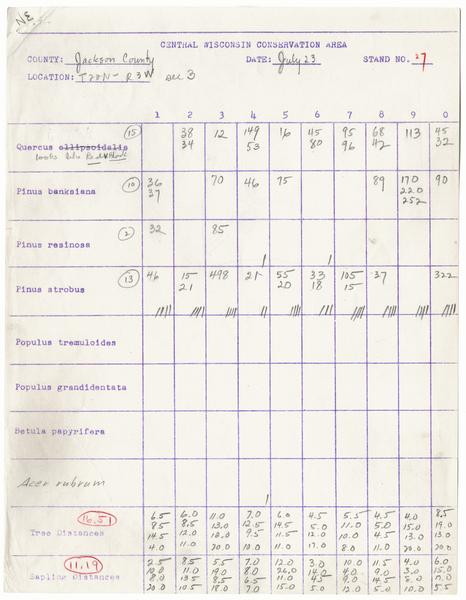 NE
CENTRAL WISCONSIN CONSERVATION AREA
COUNTY: Jackson County DATE: July 23 STAND NO. 27
LOCATION: R3W Sec 3
1 2 3 4 5 6 7 8 9 0
Quercus ellipsoidalis (15) 38 12 149 16 45 95 68 113 45
looks like 34 53 80 96 42 32
Pinus banksiana (10) 36 70 46 75 89 170 90
37 220
252
Pinus resinosa (2) 32 85
Pinus atrobus (13) 46 15 498 21 55 33 105 37 322
21 20 18 15
Populus tremuloides
Populus grandidentata
Betula papyrifera
Acer rubrum
16.51 6.5 6.0 11.0 7.0 6.0 4.5 7.5 4.5 4.0 8.5
Tree Distances 8.5 8.5 13.0 12.5 14.5 5.0 11.0 5.0 15.0 19.0
14.5 12.0 12.0 9.5 11.5 12.0 10.0 4.5 13.0 13.0
4.0 11.0 20.0 10.0 11.0 17.0 8.0 11.0 20.0 20.0
11.19 2.5 8.5 5.5 7.0 12.0 3.0 10.0 11.5 4.0 6.0
Sapling Distances 10.0 11.0 19.0 8.0 26.0 14.0 4.0 9.0 3.0 15.0
8.0 13.5 8.5 6.5 11.0 45 9.0 14.5 8.0
20.0 10.5 18.0 7.0 15.0 5.0 12.0 5.0 10.0 5.5